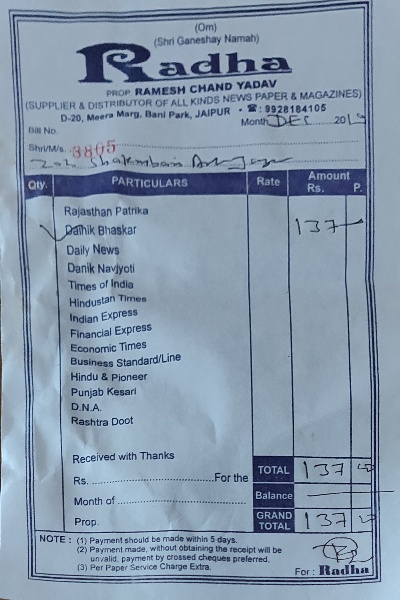 (Om)
(Shri Ganeshay Namah)
Radha
PROP. RAMESH CHAND YADAV
(SUPPLIER & DISTRIBUTOR OF ALL KINDS NEWS PAPER & MAGAZINES)
D-20, Meera Marg, Bani Park, JAIPUR - ☎: 9928184105
Bill No. Month DEC 2019
Shri/M/s. 3805
Qty. PARTICULARS Rate Amount Rs. P.
Rajasthan Patrika
Dainik Bhaskar 137
Daily News
Danik Navjyoti
Times of India
Hindustan Times
Indian Express
Financial Express
Economic Times
Business Standard/Line
Hindu & Pioneer
Punjab Kesari
D.N.A.
Rashtra Doot
Received with Thanks
Rs. ........................For the
Month of ................................
Prop.
TOTAL 137
Balance
GRAND TOTAL 137
NOTE : (1) Payment should be made within 5 days.
(2) Payment made, without obtaining the receipt will be
unvalid, payment by crossed cheques preferred.
(3) Per Paper Service Charge Extra.
For : Radha